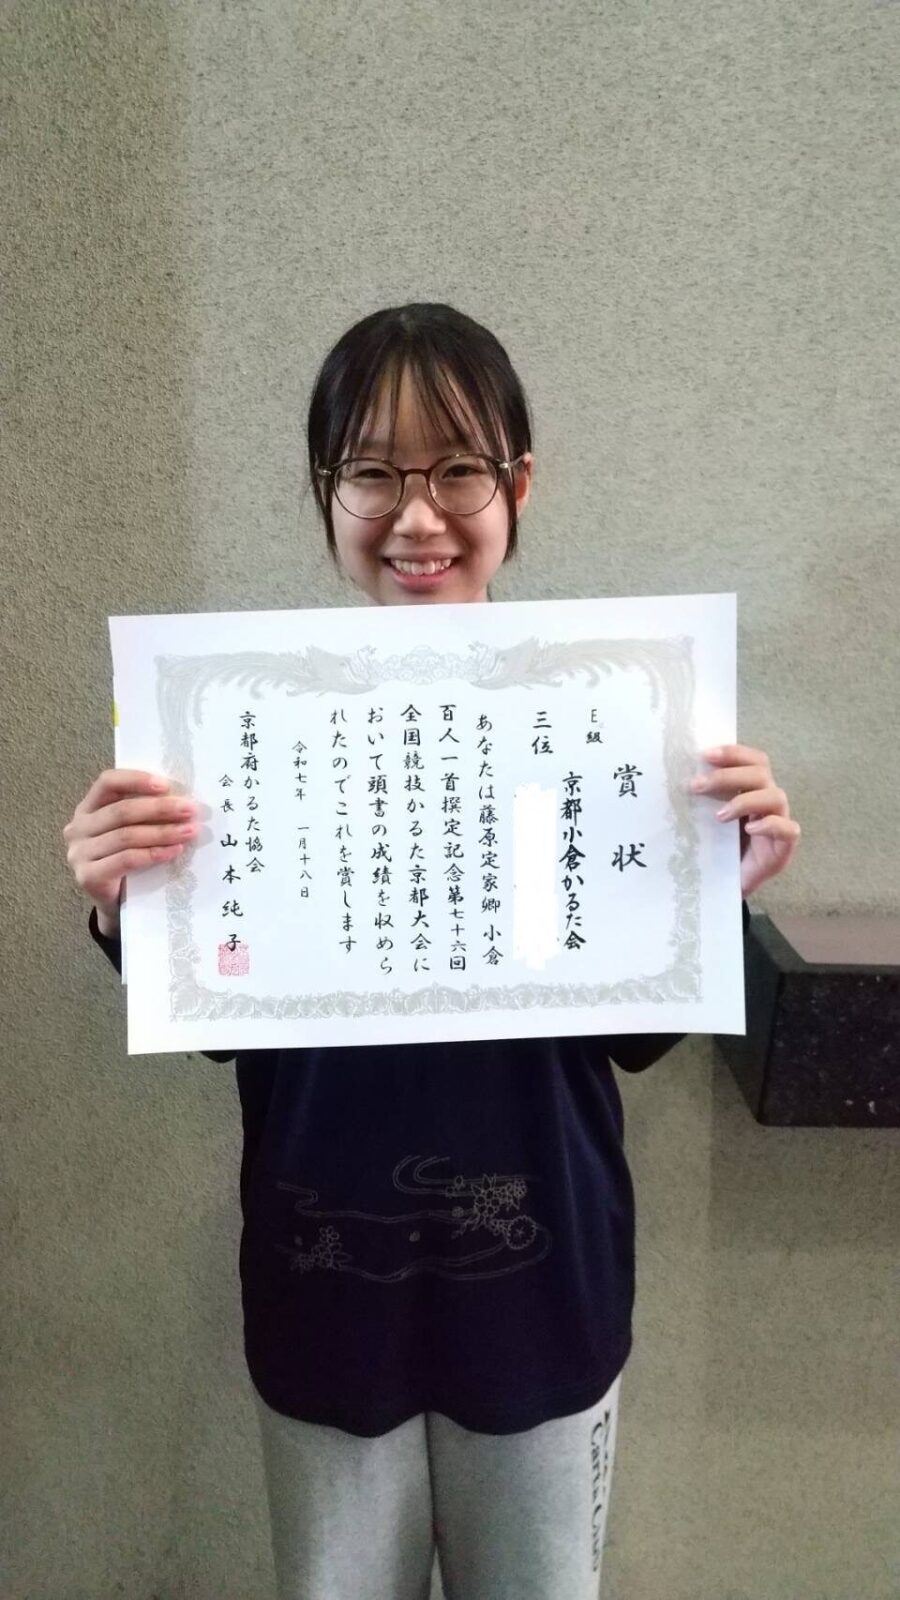 賞状
E級
京都小倉かるた会
三位
あなたは藤原定家卿 小倉
百人一首撰定記念第七十六回
全国競技かるた京都大会に
おいて頭書の成績を収めら
れたのでこれを賞します
令和七年 一月十八日
京都府かるた協会
会長 山本純子